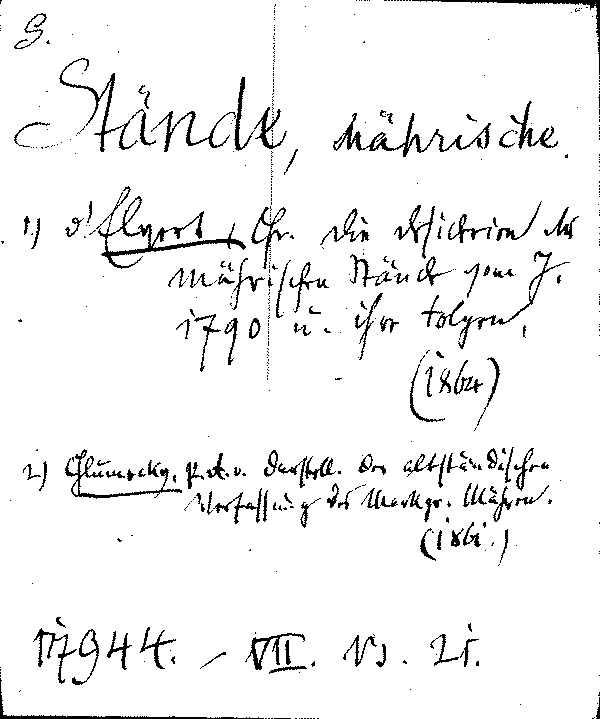 S.
Stände, mährische.
1) d'Elvert, Chr. Die Desiderien der
mährischen Stände vom J.
1790 u. ihre Folgen.
(1864)
2) Chlumecky, P. R. v. Darstell. der altständischen
Verfassung des Markgr. Mähren.
(1861.)
17944. – VII. 21.